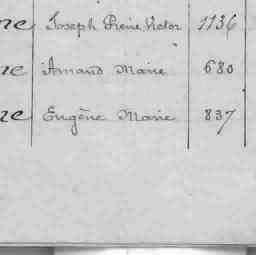 Joseph René Victor 1136
Armand Marie 680
Eugène Marie 837